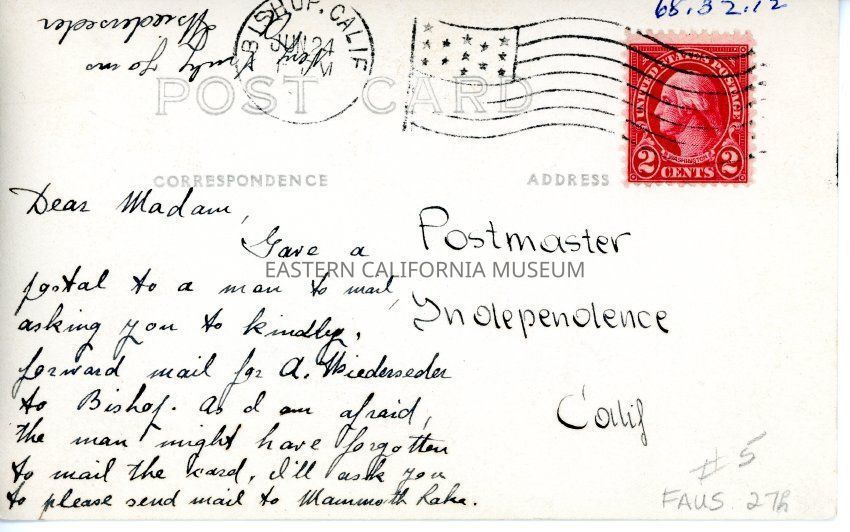 68.32.12
BISHOP, CALIF
JUN 24
M
UNITED STATES POSTAGE
WASHINGTON
2 CENTS 2
POST CARD
CORRESPONDENCE
ADDRESS
Dear Madam,
Gave a
postal to a man to mail,
asking you to kindly,
forward mail for A. Wiederseder
to Bishop. As I am afraid,
the man might have forgotten
to mail the card, I'll ask you
to please send mail to Mammoth Lake.
Very Truly Yours
Wiederseder
Postmaster
Independence
Calif
EASTERN CALIFORNIA MUSEUM
#5
FAUS. 27h